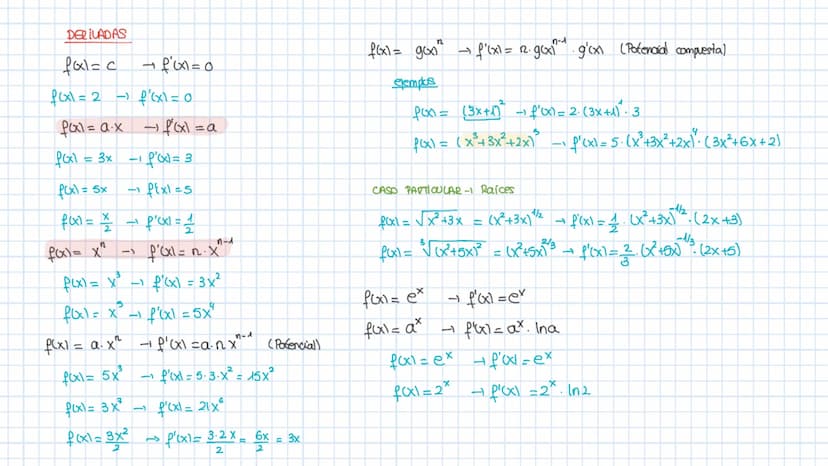 DERIVADAS
f(x) = c → f'(x) = 0
f(x) = 2 → f'(x) = 0
f(x) = a·x → f'(x) = a
f(x) = 3x → f'(x) = 3
f(x) = 5x → f'(x) = 5
f(x) = x/2 → f'(x) = 1/2
f(x) = xⁿ → f'(x) = n·xⁿ⁻¹
f(x) = x³ → f'(x) = 3x²
f(x) = x⁵ → f'(x) = 5x⁴
f(x) = a·xⁿ → f'(x) = a·n xⁿ⁻¹ (Potencial)
f(x) = 5x³ → f'(x) = 5·3·x² = 15x²
f(x) = 3x⁷ → f'(x) = 21x⁶
f(x) = 3x²/2 → f'(x) = 3·2x/2 = 6x/2 = 3x
f(x) = g(x)ⁿ → f'(x) = n·g(x)ⁿ⁻¹·g'(x) (Potencial compuesta)
ejemplos
f(x) = (3x+1)² → f'(x) = 2·(3x+1)¹·3
f(x) = (x³+3x²+2x)⁵ → f'(x) = 5·(x³+3x²+2x)⁴·(3x²+6x+2)
CASO PARTICULAR → Raíces
f(x) = √(x²+3x) = (x²+3x)^1/2 → f'(x) = 1/2·(x²+3x)^-1/2·(2x+3)
f(x) = ³√(x²+5x)² = (x²+5x)^2/3 → f'(x) = 2/3·(x²+5x)^-1/3·(2x+5)
f(x) = eˣ → f'(x) = eˣ
f(x) = aˣ → f'(x) = aˣ·ln a
f(x) = eˣ → f'(x) = eˣ
f(x) = 2ˣ → f'(x) = 2ˣ·ln 2